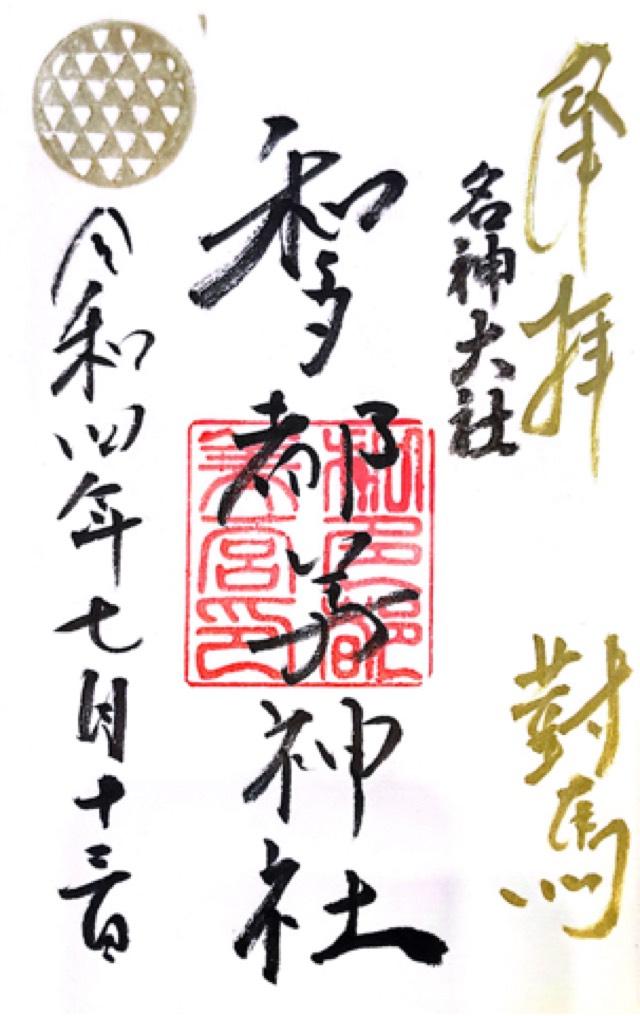 奉拝
對馬
名神大社
和多都美神社
和多都
美宮印
令和四年七月十三日